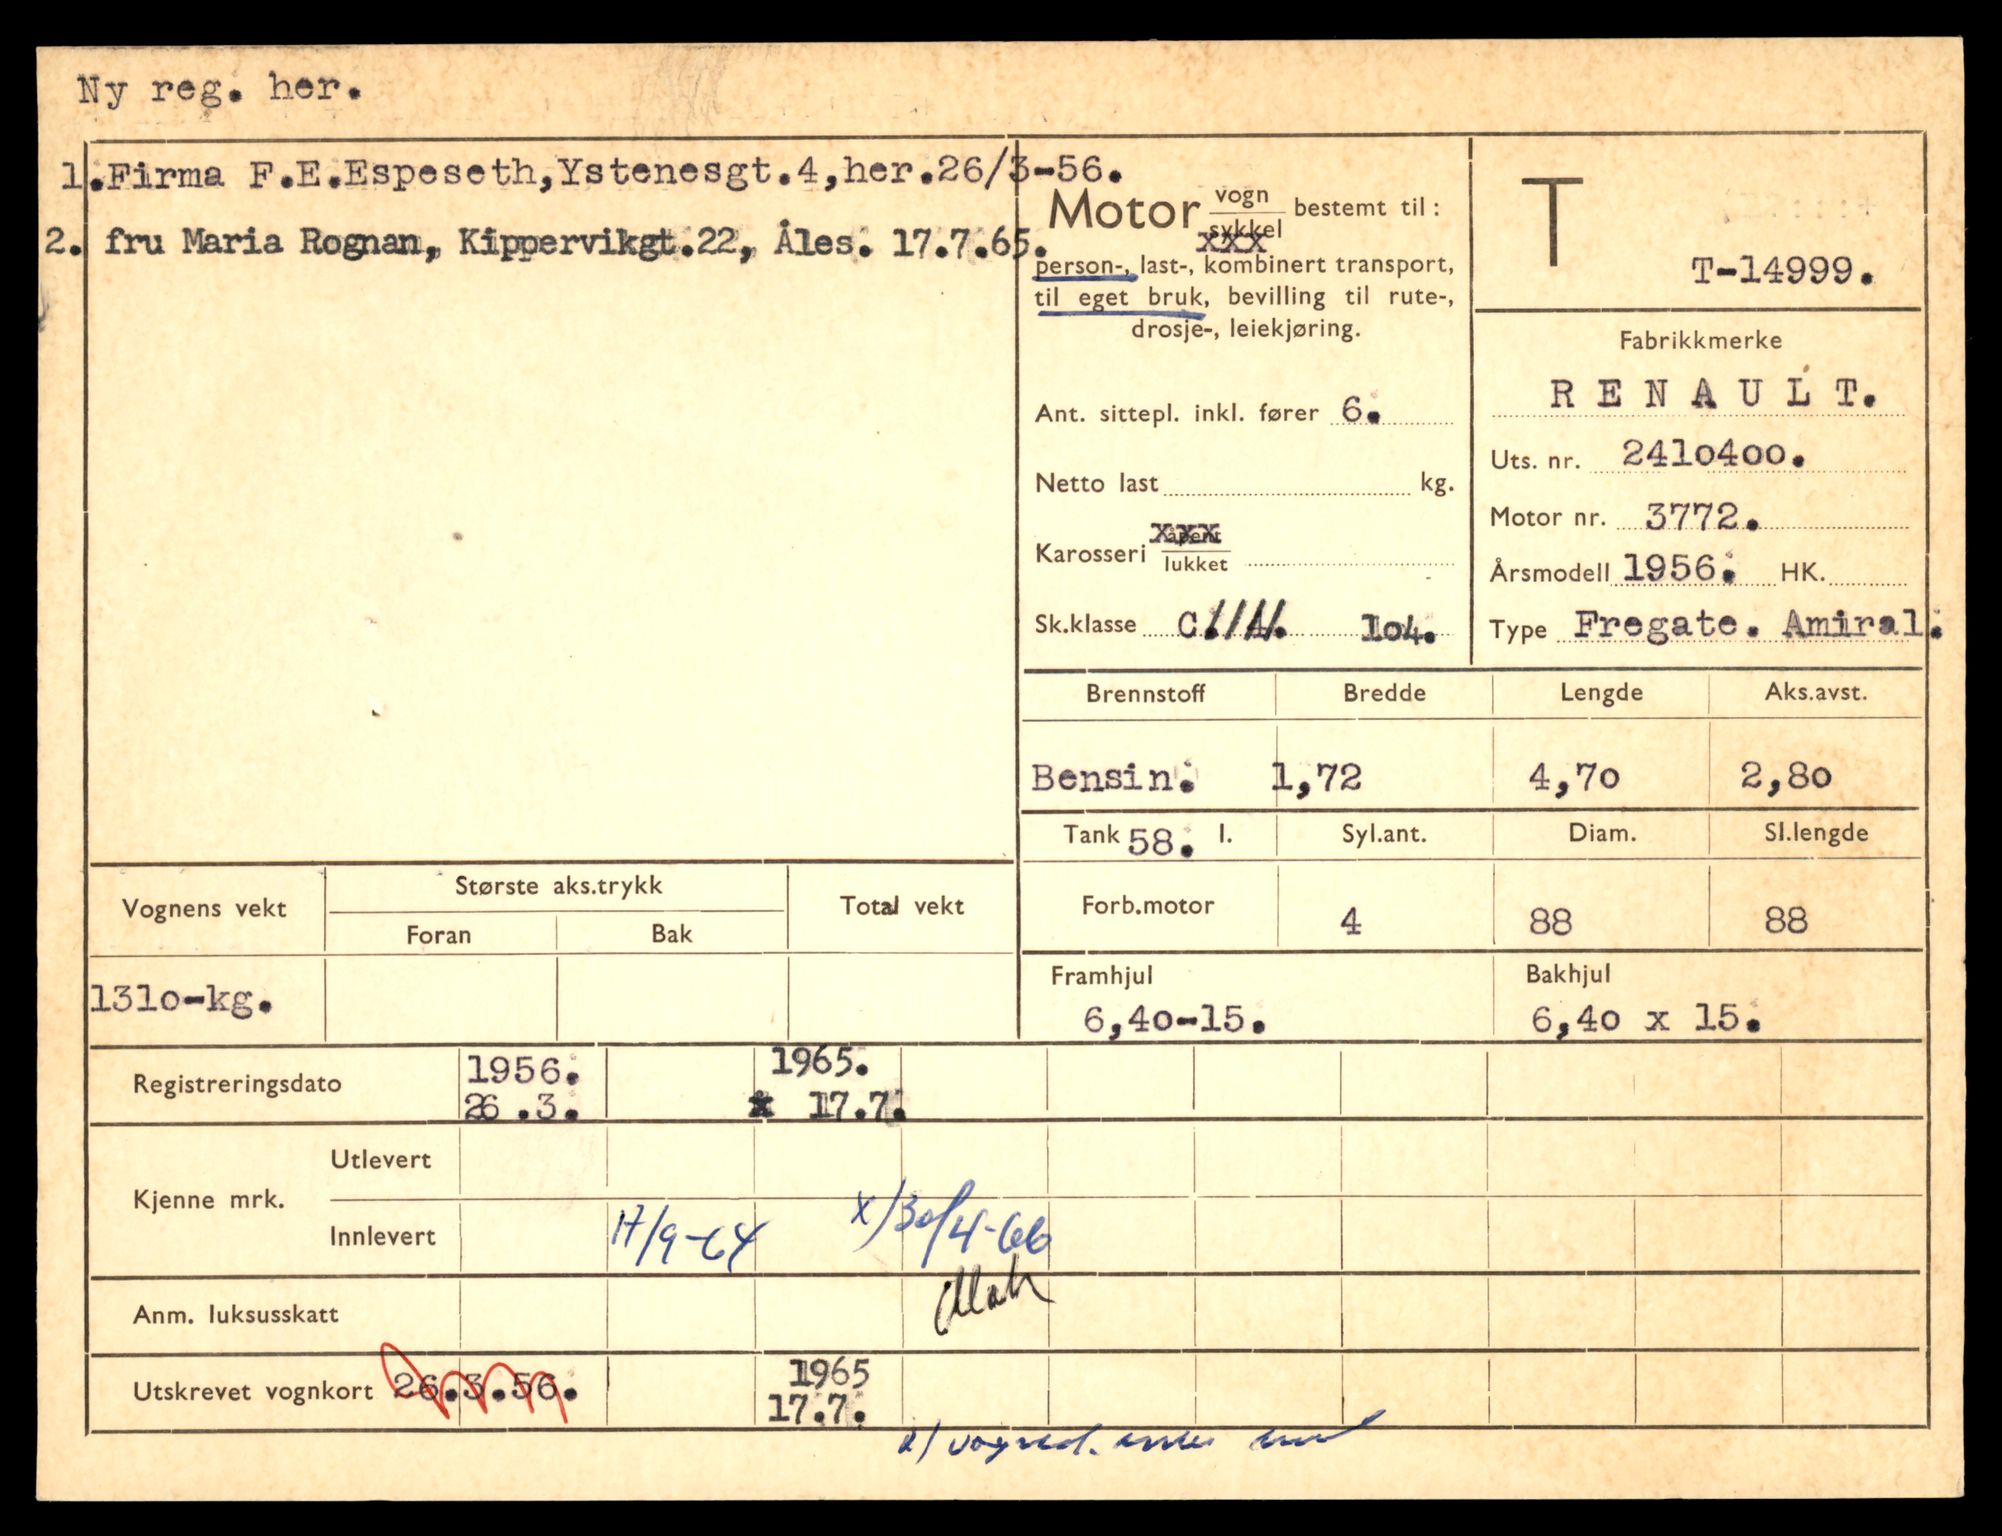 Ny reg. her.
1.Firma F.E.Espeseth,Ystenesgt.4,her.26/3-56.
2. fru Maria Rognan, Kippervikgt.22, Åles. 17.7.65.
Motor vogn
sykkel bestemt til:
person-, last-, kombinert transport,
til eget bruk, bevilling til rute-,
drosje-, leiekjøring.
Ant. sittepl. inkl. fører 6.
Netto last kg.
Karosseri åpent
lukket
Sk.klasse C. 104.
T
T-14999.
Fabrikkmerke
RENAULT.
Uts. nr. 2410400.
Motor nr. 3772.
Årsmodell 1956. HK.
Type Fregate. Amiral.
Brennstoff Bredde Lengde Aks.avst.
Bensin. 1,72 4,70 2,80
Tank 58. l. Syl.ant. Diam. Sl.lengde
Forb.motor 4 88 88
Framhjul Bakhjul
6,40-15. 6,40 x 15.
Vognens vekt Største aks.trykk Total vekt
Foran Bak
1310-kg.
Registreringsdato 1956. 1965.
26.3. 17.7.
Kjenne mrk. Utlevert
Innlevert 17/9-64 x/30/4-66
Anm. luksusskatt
Utskrevet vognkort 26.3.56. 1965
17.7.